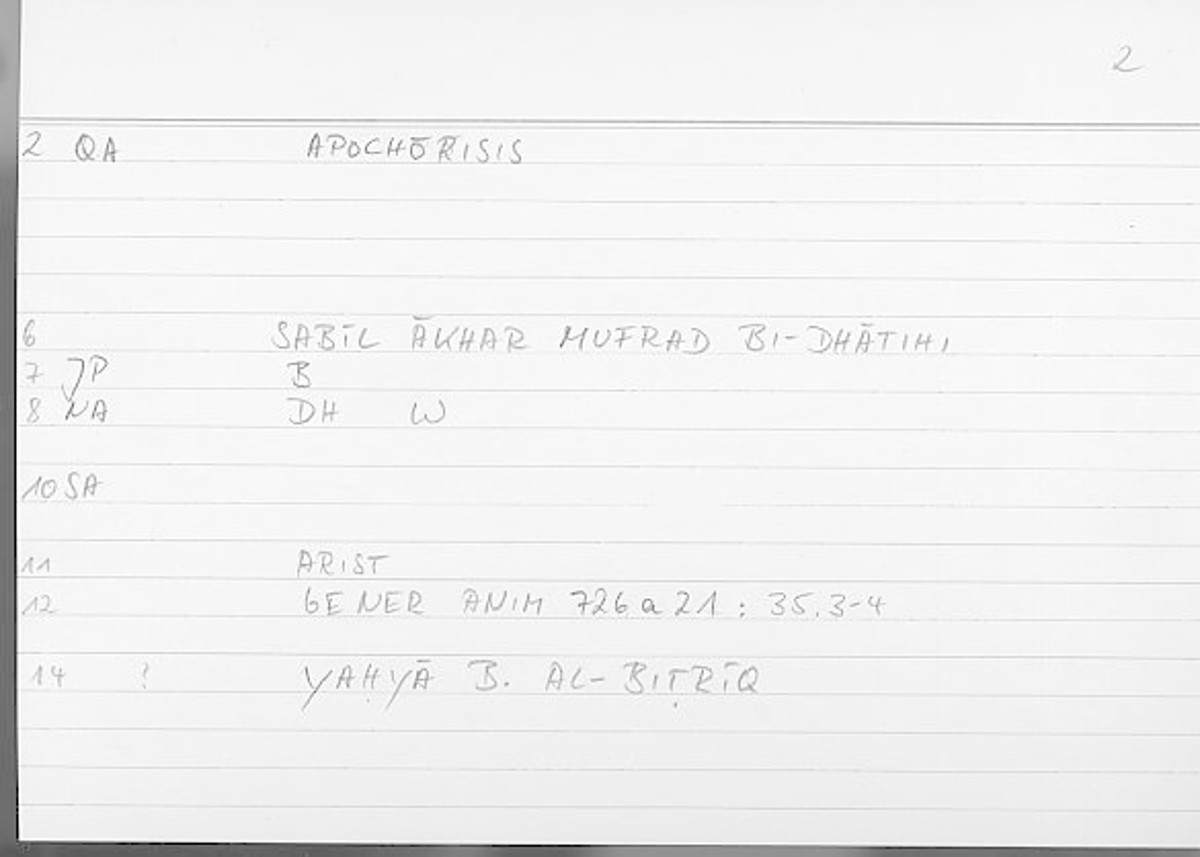 2
2 QA APOCHŌRISIS
6 SABĪL ĀKHAR MUFRAD BI-DHĀTIHI
7 JP B
8 NA DH W
10 SA
11 ARIST
12 GENER ANIM 726a21 : 35.3-4
14 ? YAḤYĀ B. AL-BIṬRĪQ